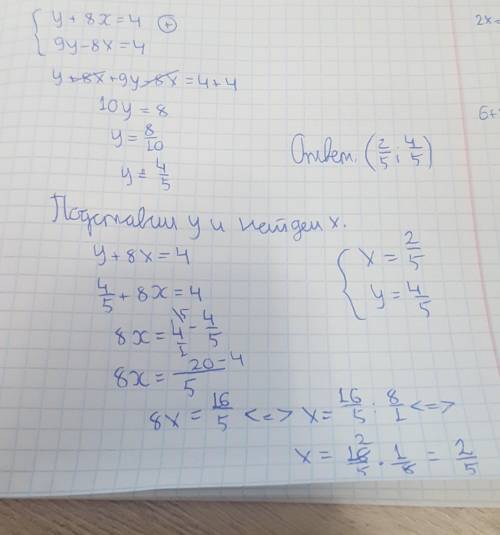 { y + 8x = 4 (+)
9y - 8x = 4
y + 8x + 9y - 8x = 4 + 4
10y = 8
y = 8/10
y = 4/5
Ответ: (2/5; 4/5)
Подставим y и найдем x.
y + 8x = 4
4/5 + 8x = 4
8x = 4/1 \5 - 4/5
8x = 20-4/5
8x = 16/5 <=> x = 16/5 : 8/1 <=>
x = 16/5 2 · 1/8 = 2/5
{ x = 2/5
y = 4/5
2x=
6+